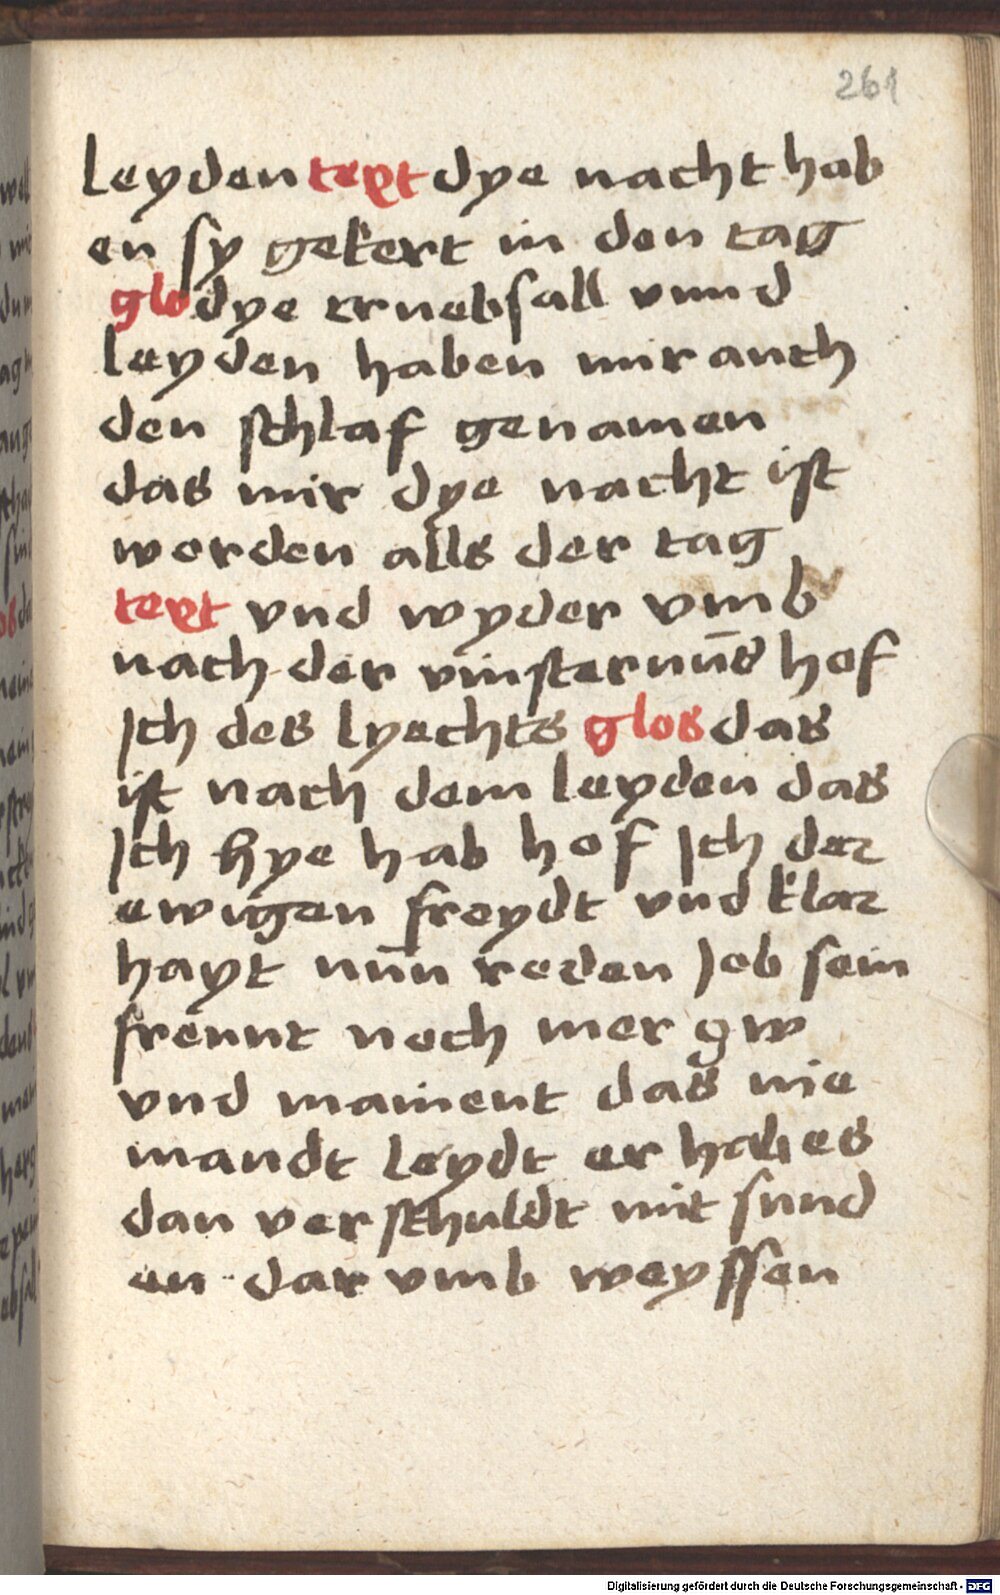 261
leyden text dye nacht hab
en sy gekert in den tag
glo dye truebsall vnnd
leyden haben mir auch
den schlaf genamen
das mir dye nacht ist
worden alls der tag
text vnd wyder vmb
nach der vinsternūs hof
Ich des lyechts glos das
ist nach dem leyden das
Ich hye hab hof Ich der
ewigen freydt vnd klar
hayt nūn reden Job sein
freunt noch mer zw
vnd mainent das nie
mandt leydt er hab es
dan verschuldt mit sund
en dar vmb weyssen
Digitalisierung gefördert durch die Deutsche Forschungsgemeinschaft - DFG